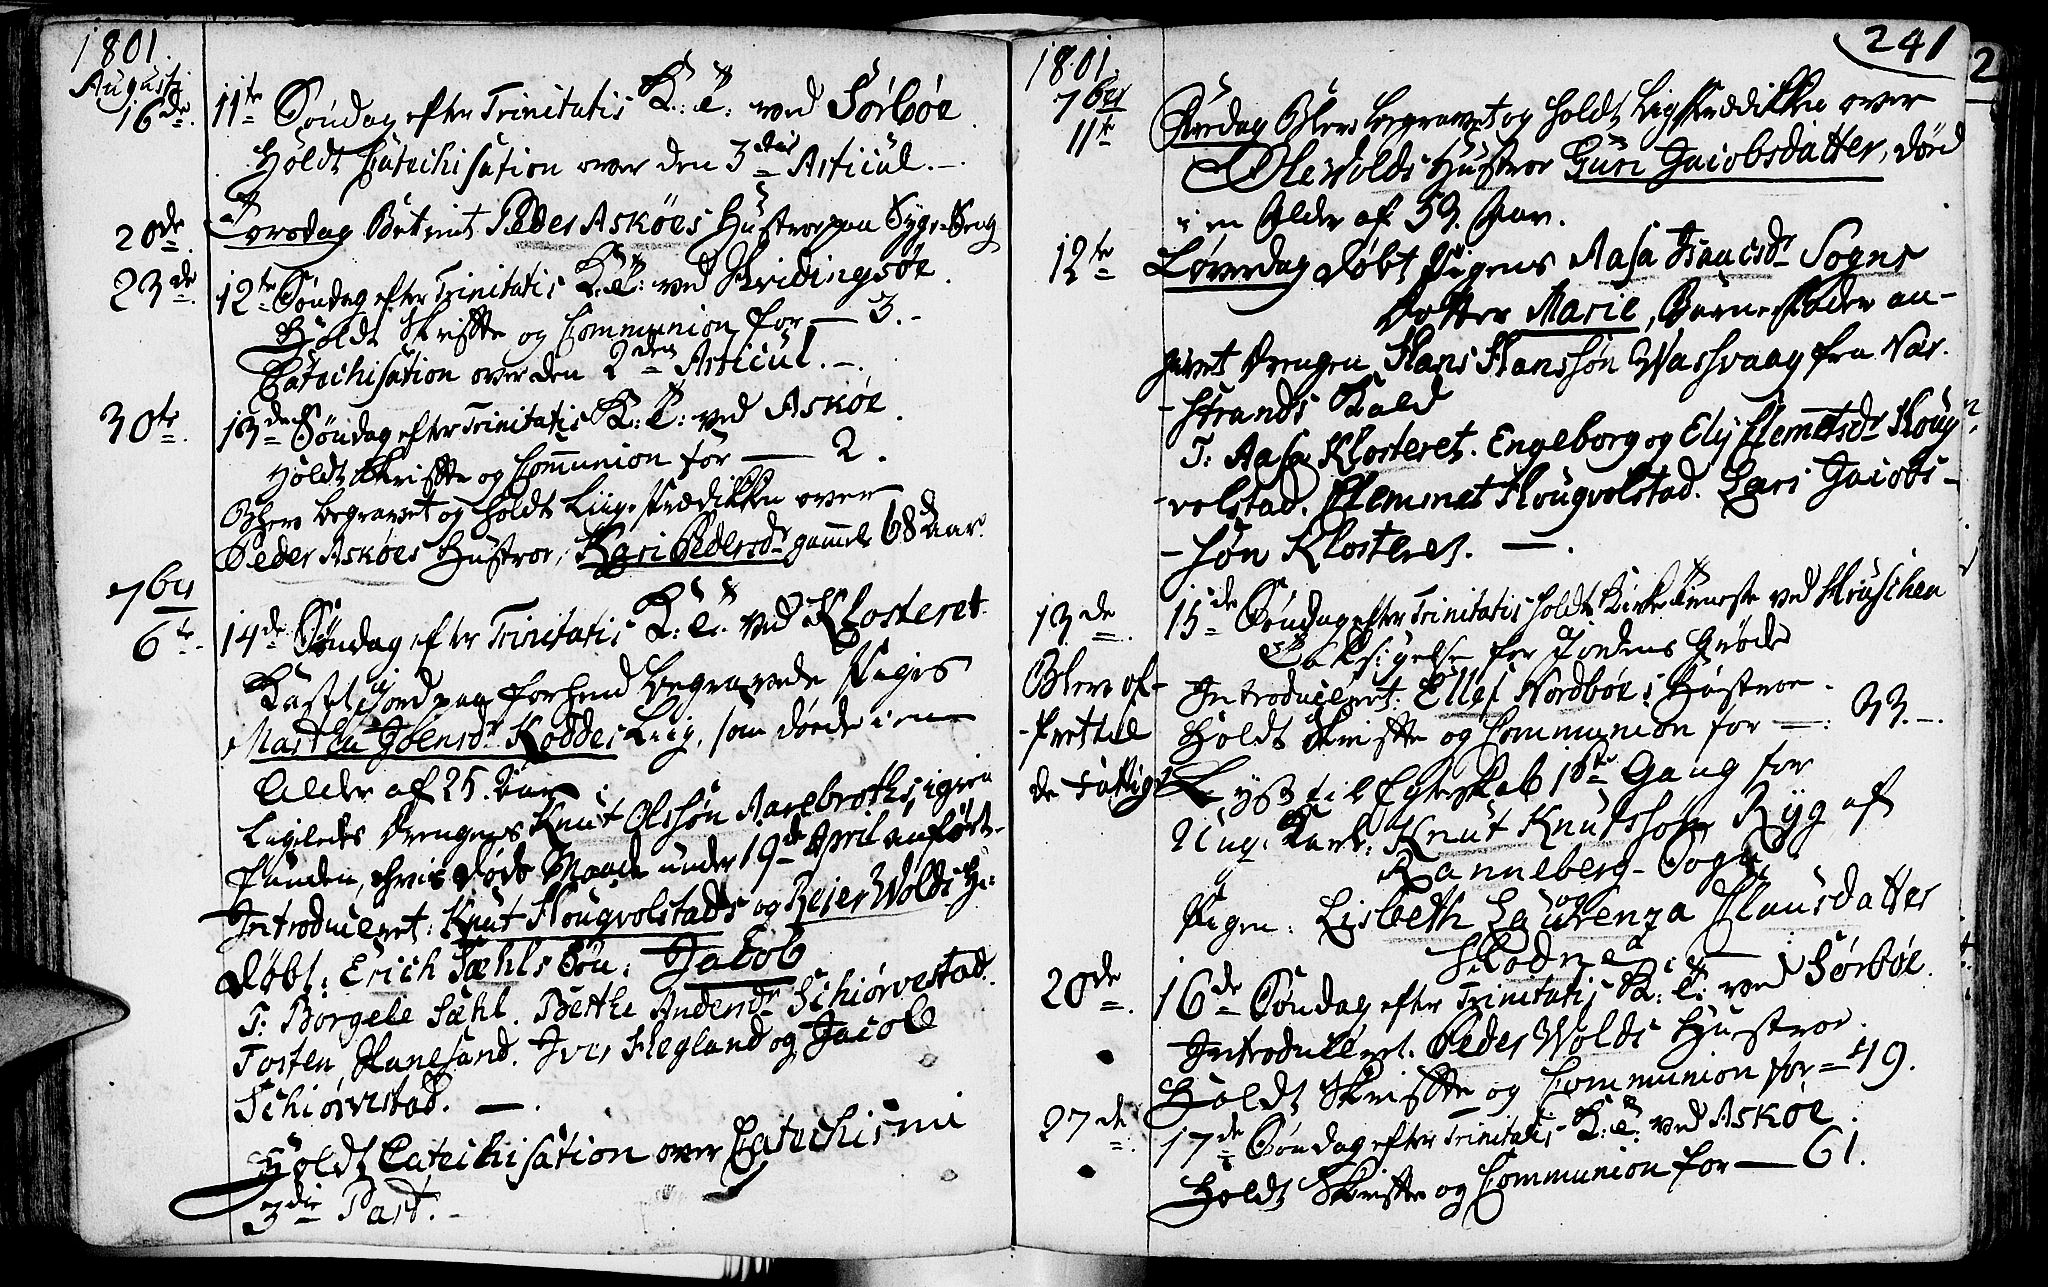 1801.
Augusti
16de. 11te Søndag efter Trinitatis K: T: ved Sørbøe.
Holdt Catechisation over den 3die Articul. -
20de. Torsdag Betient Peder Askøes Hustroe paa Syge-Seng
23de. 12te Søndag efter Trinitatis K: T: ved Hvidingsøe.
Holdt Skrifte og Communion for — 3. -
Catechisation over den 2den Articul. -.
30te. 13de Søndag efter Trinitatis K: T: ved Askøe.
Holdt Skrifte og Communion for — 2.
Blev begravet og holdt Liigprædikken over
Peder Askøes Hustroe, Kari Pedersdr gammel 68 Aar.
7br
6te. 14de Søndag efter Trinitatis K: T: ved Klosteret.
Kastet Jord paa forhend begravede Piges
Martha Joensdr Koddes Liig, som døede i en
Alder af 25. Aar.
Ligeledes Drengens Knut Olssøn Aarebroths, igien
funden, hvis Døds Maade under 19de April anført.
Introduceret: Knut Hougvolstads og Reier Wolds H:
Døbt: Erich Sæhls Søn: Jacob
T: Borgele Sæhl. Berthe Andersdr Schiørvestad.
Tosten Hanesand. Iver Hegland og Jacob
Schiørvestad. —.
Holdt Catechisation over Catechismi
3die Part. -
241
1801.
7br
11te Fredag Blev begravet og holdt Liigprædikken over
Ole Wolds Hustroe Guri Jacobsdatter, død
i en Alder af 59. Aar.
12te Løverdag døbt Pigens Aasa Isaacsdr Sogns
Dotter Marie, Barnefader an-
givet Drengen Hans Hanssøn Wasvaag fra Nær-
-strands Kald
T: Aasa Klosteret. Engeborg og Elj Clemetsdr Houg
-volstad. Clemmet Hougvolstad. Lars Jacobs-
-søn Klosteret. —.
13de. 15de Søndag efter Trinitatis holdt Kirke Tieneste ved Huuschen
Taksigelse for Jordens Grøde
Blev of- Introduceret: Ellef Nordbøes Hustroe.
-fret til Holdt Skrifte og Communion for —: 33. -.
de Fattige Lyst til Egteskab 1ste Gang for
Ung: Karl: Knut Knutssøn Ryg af
Ranneberg-Sogn
og
Pigen: Lisbeth Laurenza Clausdatter
Skodne. —.
20de. 16de Søndag efter Trinitatis K: T: ved Sørbøe.
Introduceret. Peder Wolds Hustroe.
Holdt Skrifte og Communion for = 49.
27de. 17de Søndag efter Trinitatis K: T: ved Askøe.
Holdt Skrifte og Communion for — 61.